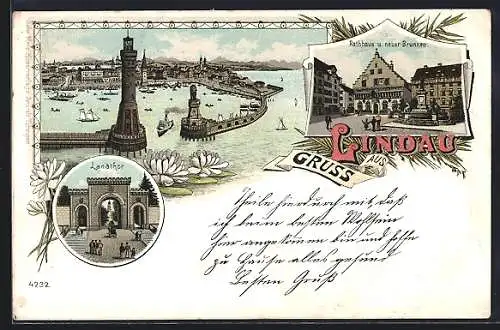 Rathhaus u. neuer Brunnen.
GRUSS AUS LINDAU
Landthor
4232
Theile hierdurch mit, daß
ich beim besten Wohlsein
hier angekommen bin und hoffe
zu Hause alles gesund
Besten Gruß